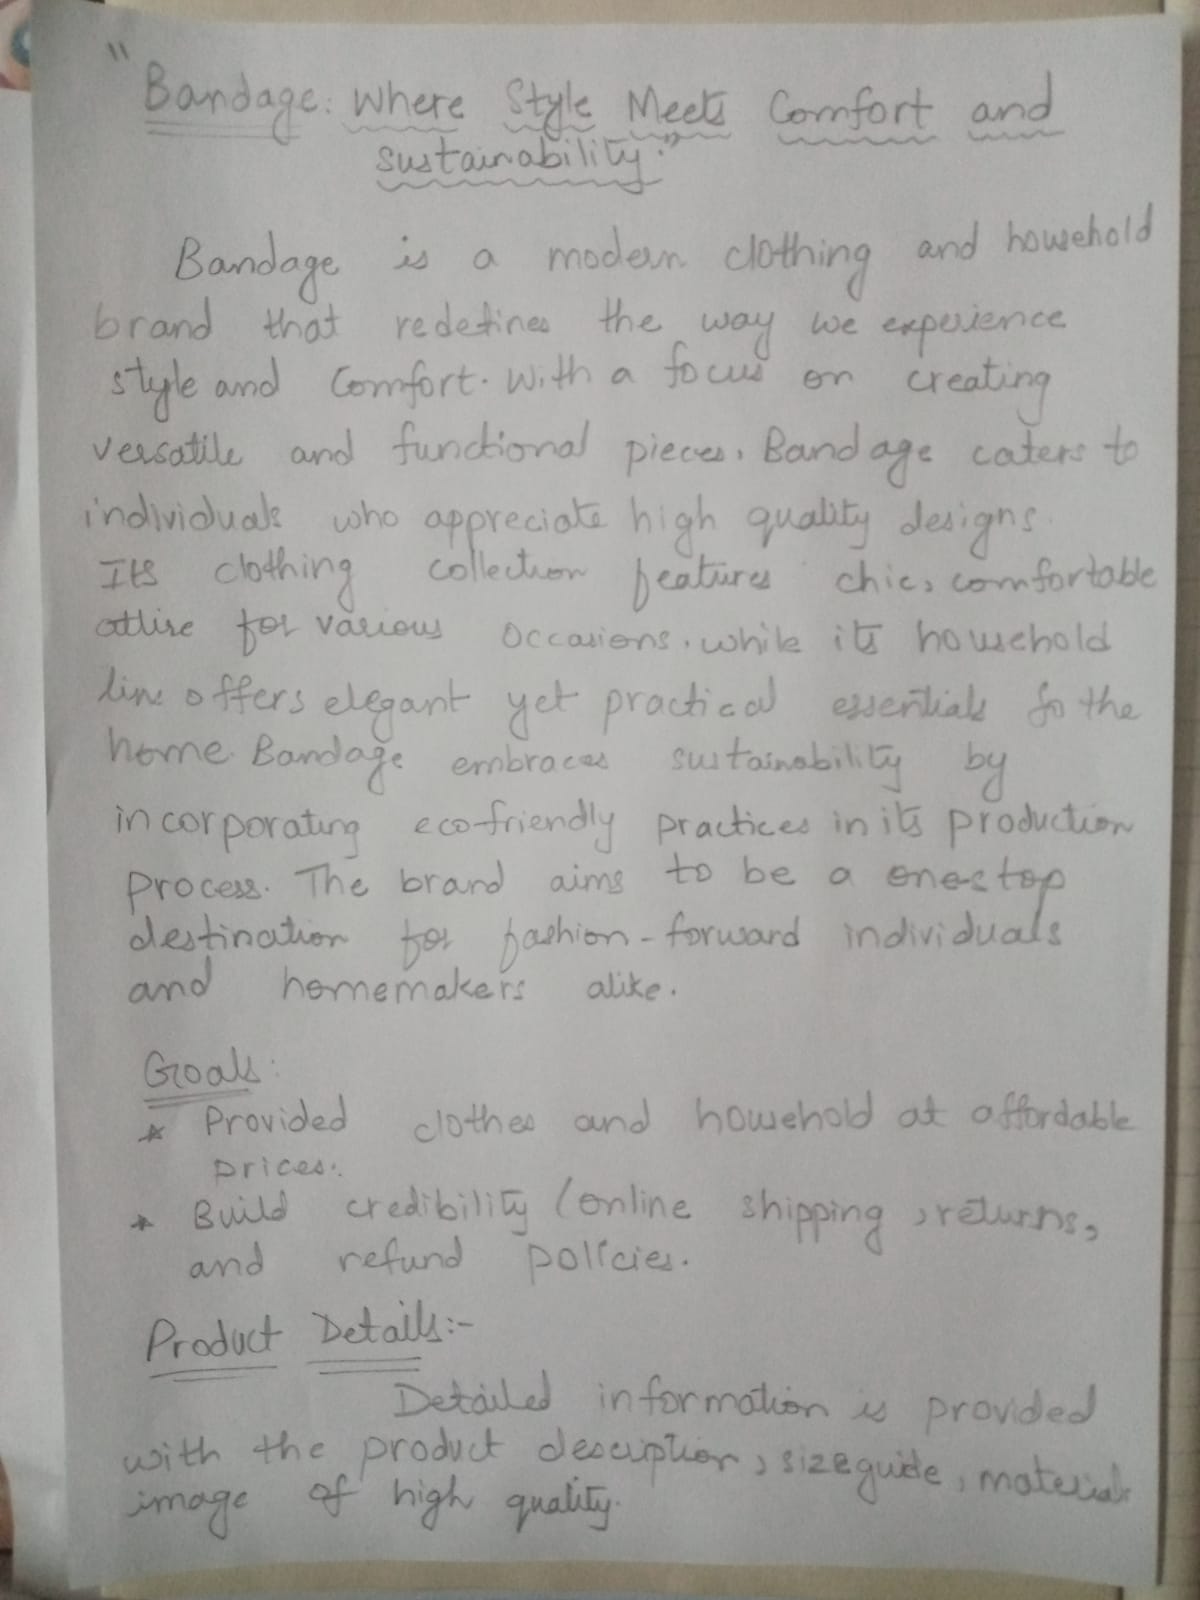 "Bandage: Where Style Meets Comfort and
sustainability."
Bandage is a modern clothing and household
brand that redefines the way we experience
style and Comfort. With a focus on creating
versatile and functional pieces, Bandage caters to
individuals who appreciate high quality designs.
Its clothing collection features chic, comfortable
attire for various occasions, while its household
line offers elegant yet practical essentials fo the
home. Bandage embraces sustainability by
incorporating eco-friendly practices in its production
process. The brand aims to be a one-stop
destination for fashion-forward individuals
and homemakers alike.
Goals:
* Provided clothes and household at affordable
prices.
* Build credibility (online shipping, returns,
and refund policies.
Product Details:-
Detailed information is provided
with the product description, size guide, materials
image of high quality.